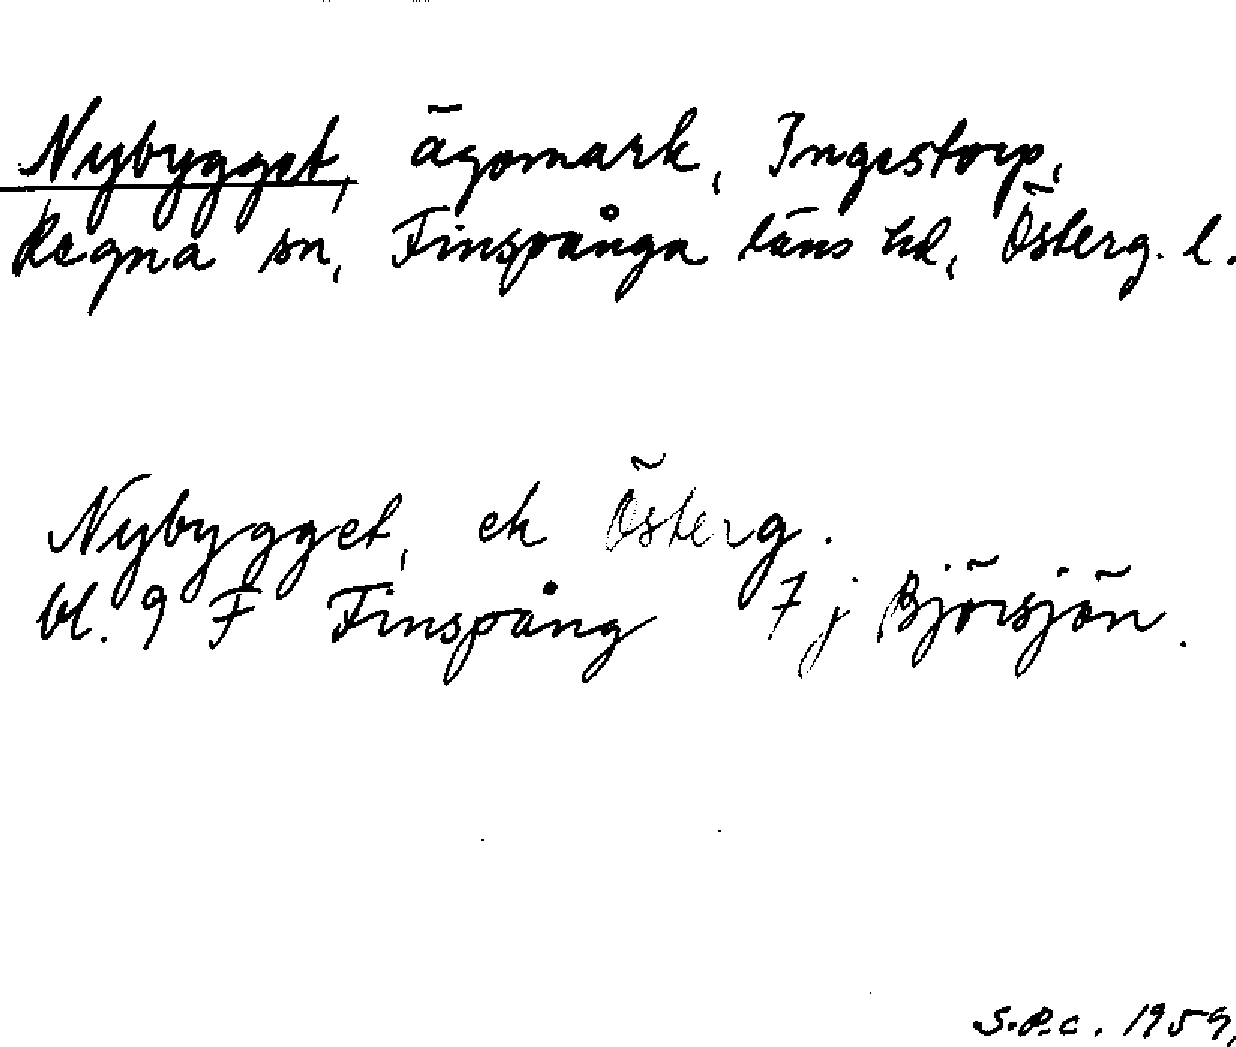 Nybygget, ägomark, Ingestorp,
Regna sn, Finspånga läns hd, Österg. l.
Nybygget, ek Österg.
bl. 9 F Finspång 7 j Björsjön.
S.P.c. 1959,